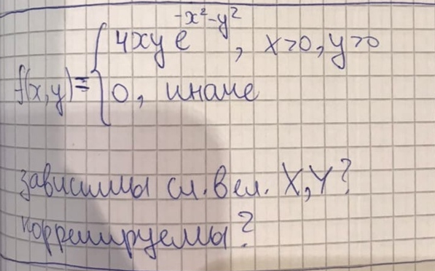 f(x,y)={4xy e^{-x²-y²}, x>0, y>0
0, иначе
зависимы сл. вел. X,Y?
коррелируемы?